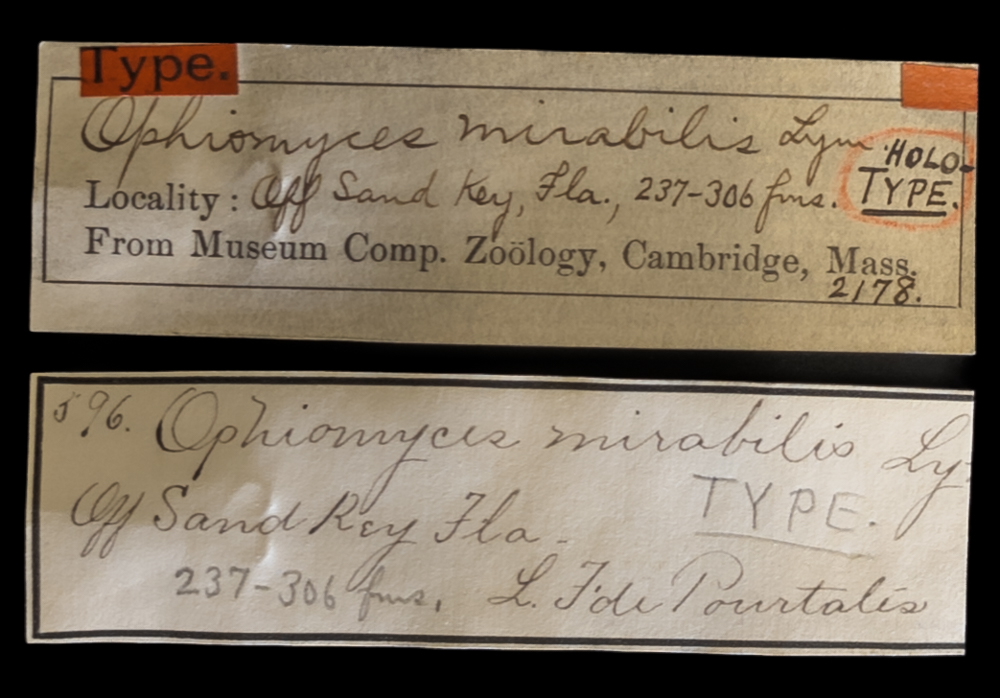 Type.
Ophiomyces mirabilis Lym
HOLO-
TYPE.
Locality : Off Sand Key, Fla., 237-306 fms.
From Museum Comp. Zoölogy, Cambridge, Mass.
2178.
596. Ophiomyces mirabilis Ly
TYPE.
Off Sand Key Fla.
237-306 fms. L. F. de Pourtalés